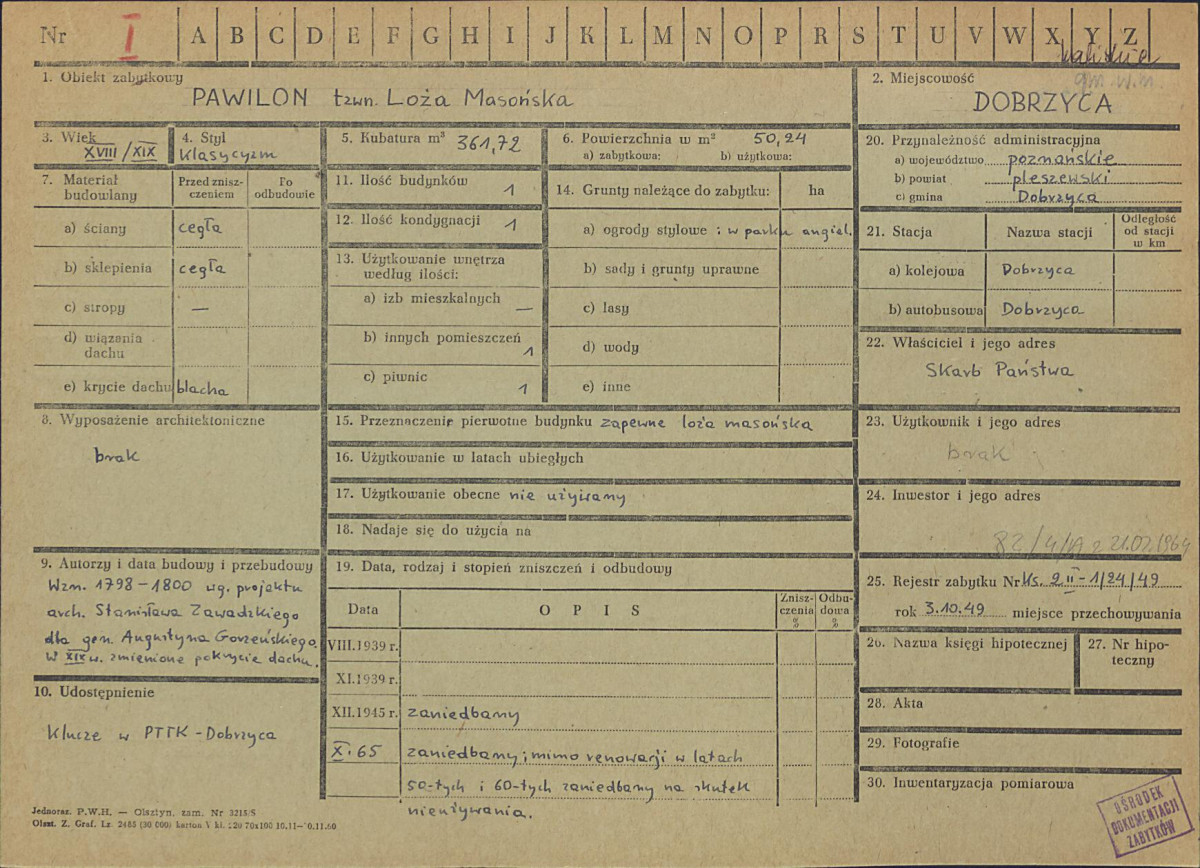 Nr I A B C D E F G H I J K L M N O P R S T U V W X Y Z
kaliskie
gm. w.m.
1. Obiekt zabytkowy
PAWILON tzwn. Loża Masońska
2. Miejscowość
DOBRZYCA
3. Wiek
XVIII/XIX
4. Styl
klasycyzm
5. Kubatura m³ 361,72
6. Powierzchnia w m² 50,24
a) zabytkowa: b) użytkowa:
20. Przynależność administracyjna
a) województwo poznańskie
b) powiat pleszewski
c) gmina Dobrzyca
7. Materiał budowlany
Przed zniszczeniem
Po odbudowie
a) ściany cegła
b) sklepienia cegła
c) stropy —
d) wiązania dachu
e) krycie dachu blacha
11. Ilość budynków 1
12. Ilość kondygnacji 1
13. Użytkowanie wnętrza
według ilości:
a) izb mieszkalnych —
b) innych pomieszczeń 1
c) piwnic 1
14. Grunty należące do zabytku: ha
a) ogrody stylowe : w parku angiel.
b) sady i grunty uprawne
c) lasy
d) wody
e) inne
21. Stacja Nazwa stacji Odległość od stacji w km
a) kolejowa Dobrzyca
b) autobusowa Dobrzyca
22. Właściciel i jego adres
Skarb Państwa
8. Wyposażenie architektoniczne
brak
15. Przeznaczenie pierwotne budynku zapewne loża masońska
16. Użytkowanie w latach ubiegłych
17. Użytkowanie obecne nie używany
18. Nadaje się do użycia na
23. Użytkownik i jego adres
brak
24. Inwestor i jego adres
82/4/A z 21.02.1964
9. Autorzy i data budowy i przebudowy
Wzn. 1798–1800 wg. projektu
arch. Stanisława Zawadzkiego
dla gen. Augustyna Gorzeńskiego.
W XIX w. zmienione pokrycie dachu.
10. Udostępnienie
Klucze w PTTK - Dobrzyca
19. Data, rodzaj i stopień zniszczeń i odbudowy
Data OPIS Zniszczenia % Odbudowa %
VIII.1939 r.
XI.1939 r.
XII.1945 r. zaniedbany
X.65 zaniedbany; mimo renowacji w latach
50-tych i 60-tych zaniedbany na skutek
nieużywania.
25. Rejestr zabytku Nr Ks. 2 II - 1/24/49
rok 3.10.49 miejsce przechowywania
26. Nazwa księgi hipotecznej
27. Nr hipoteczny
28. Akta
29. Fotografie
30. Inwentaryzacja pomiarowa
OŚRODEK
DOKUMENTACJI
ZABYTKÓW
Jednoraz. P.W.H. — Olsztyn, zam. Nr 3215/S
Olszt. Z. Graf. Lz. 2485 (30 000) karton V kl. 220 70x100 10.11—10.11.60